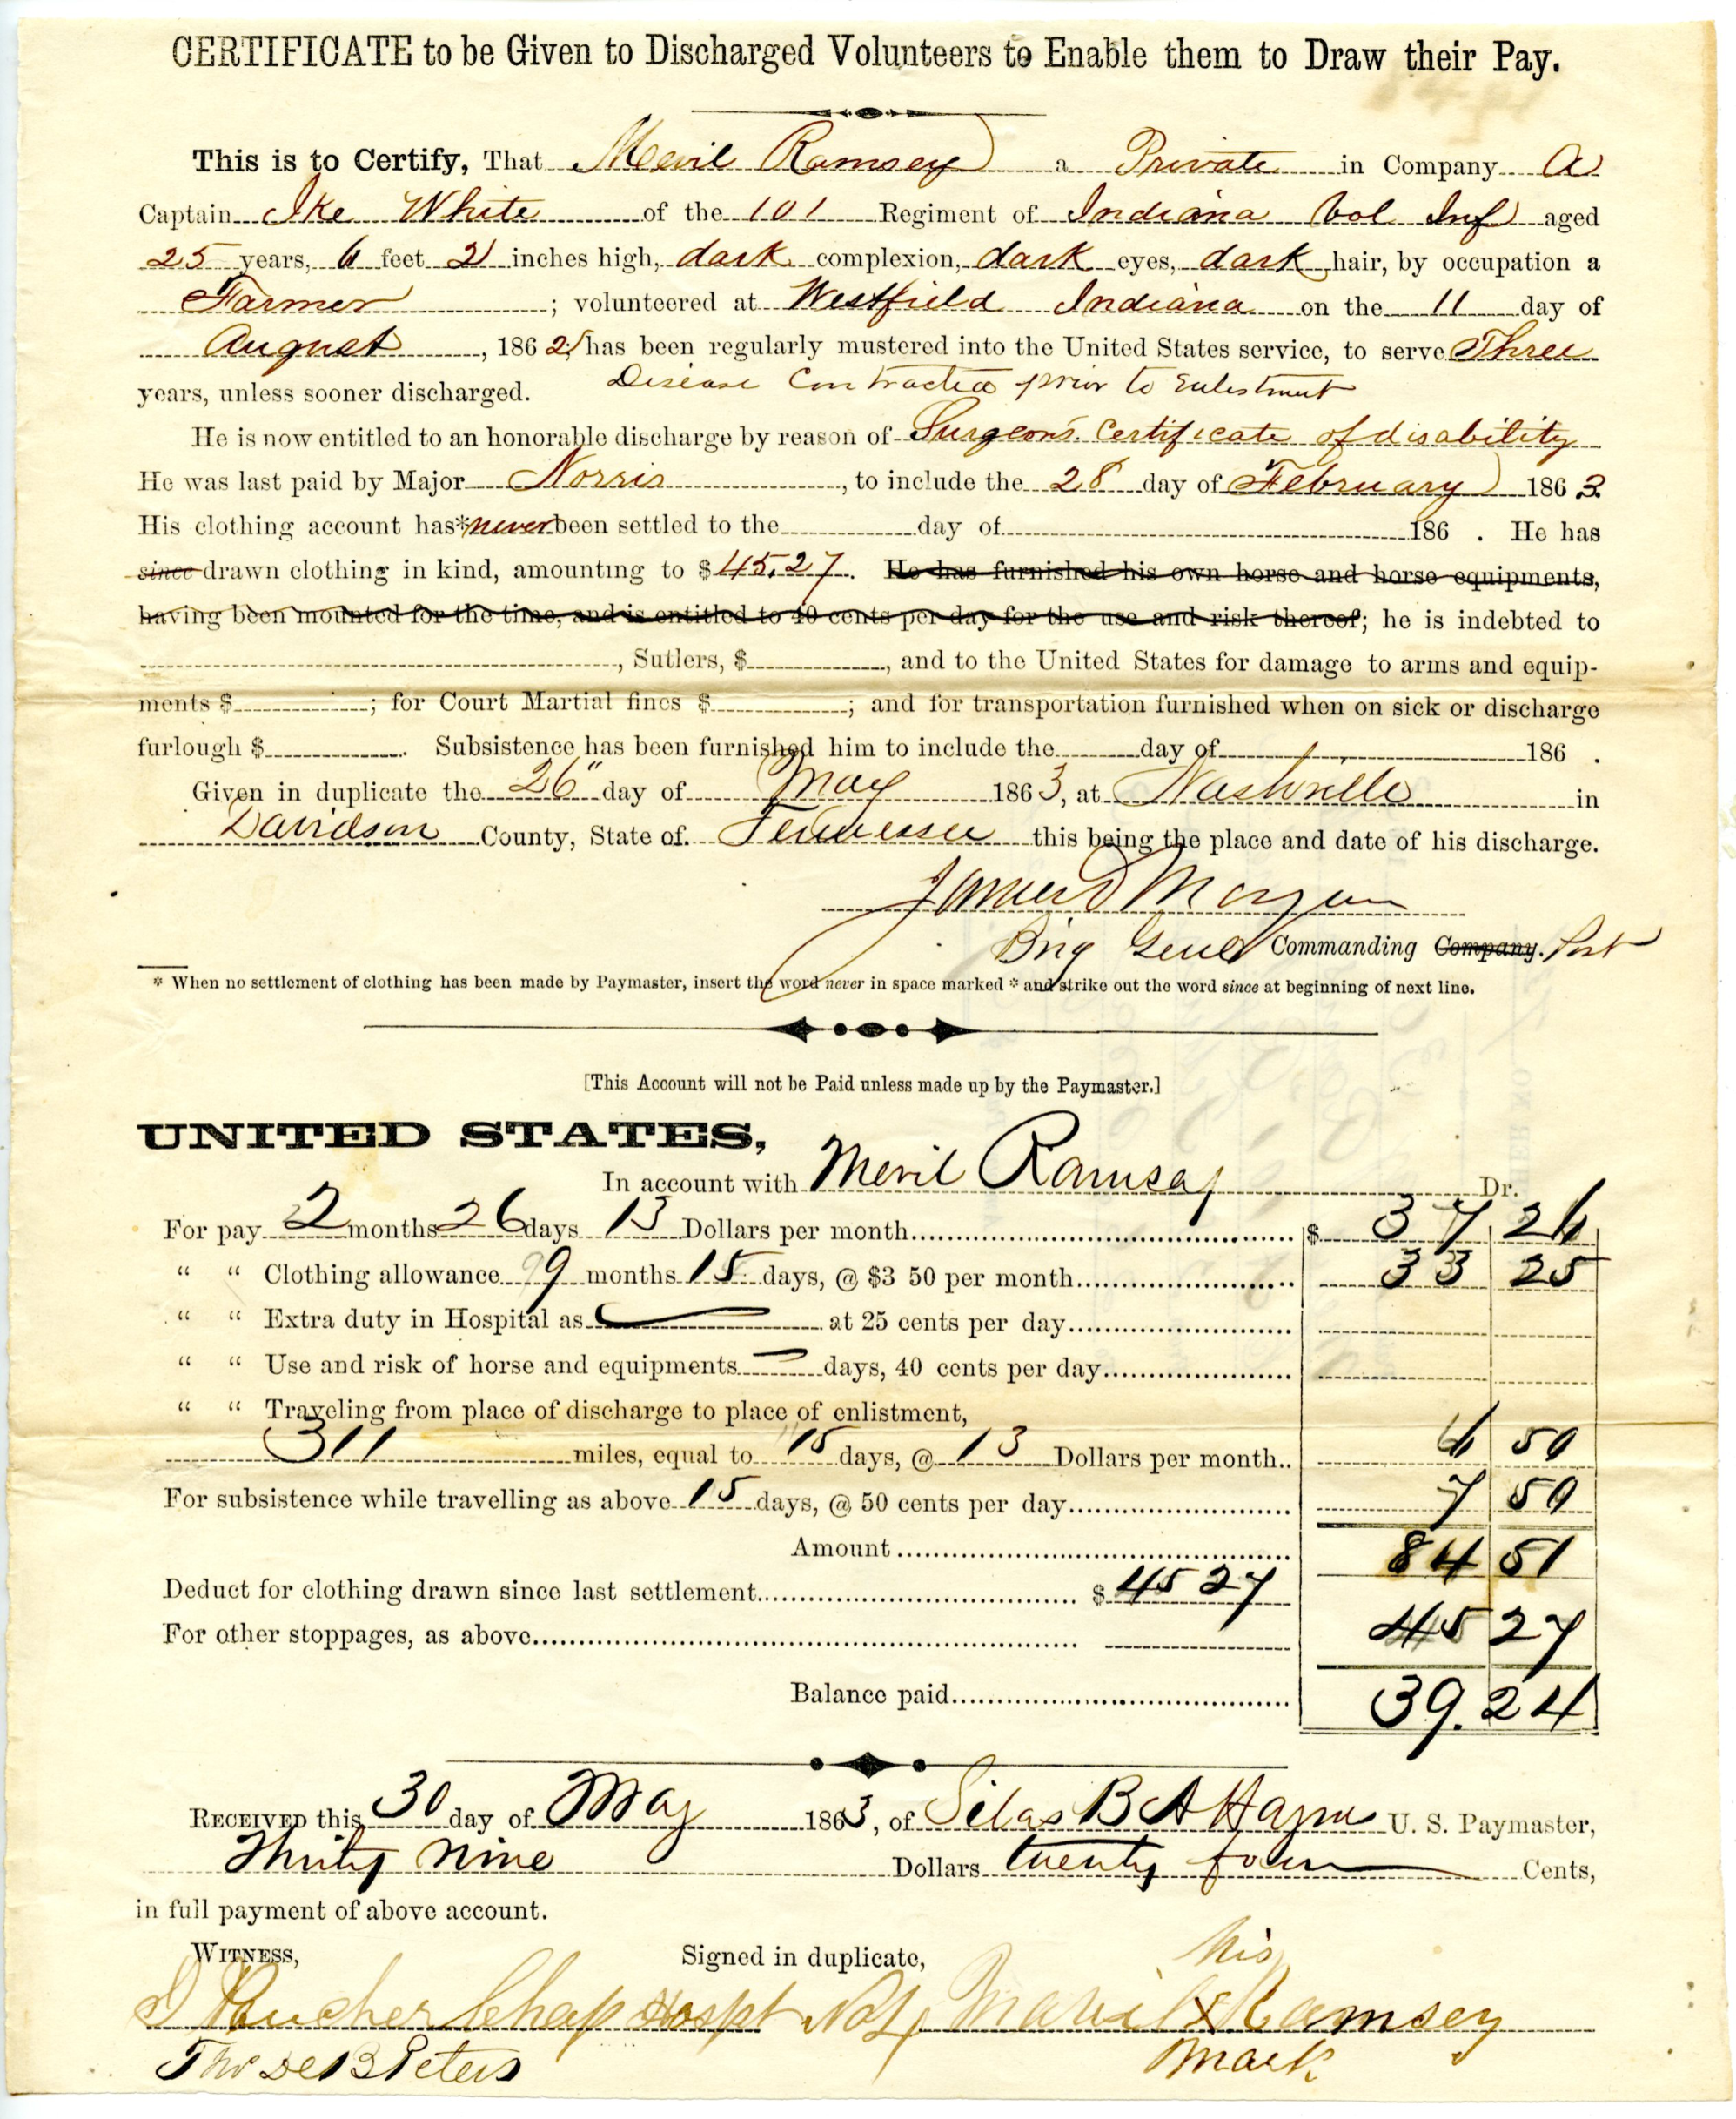 CERTIFICATE to be Given to Discharged Volunteers to Enable them to Draw their Pay.
This is to Certify, That Mevil Ramsey a Private in Company A
Captain Ike White of the 101 Regiment of Indiana Vol Inf aged
25 years, 6 feet 2 inches high, dark complexion, dark eyes, dark hair, by occupation a
Farmer ; volunteered at Westfield Indiana on the 11 day of
August , 1862, has been regularly mustered into the United States service, to serve Three
years, unless sooner discharged. Disease Contracted prior to Enlistment
He is now entitled to an honorable discharge by reason of Surgeon's Certificate of disability
He was last paid by Major Norris , to include the 28 day of February 1863
His clothing account has* never been settled to the day of 186 . He has
since drawn clothing in kind, amounting to $45.27. He has furnished his own horse and horse equipments,
having been mounted for the time, and is entitled to 40 cents per day for the use and risk thereof; he is indebted to
, Sutlers, $ , and to the United States for damage to arms and equip-
ments $ ; for Court Martial fines $ ; and for transportation furnished when on sick or discharge
furlough $ . Subsistence has been furnished him to include the day of 186 .
Given in duplicate the 26" day of May 1863, at Nashville in
Davidson County, State of Tennessee this being the place and date of his discharge.
James D Morgan
Brig Genl Commanding Company. Post
* When no settlement of clothing has been made by Paymaster, insert the word never in space marked * and strike out the word since at beginning of next line.
[This Account will not be Paid unless made up by the Paymaster.]
UNITED STATES,
In account with Mevil Ramsay Dr.
For pay 2 months 26 days 13 Dollars per month $ 37 26
" " Clothing allowance 9 months 15 days, @ $3 50 per month 33 25
" " Extra duty in Hospital as at 25 cents per day
" " Use and risk of horse and equipments days, 40 cents per day
" " Traveling from place of discharge to place of enlistment,
311 miles, equal to 15 days, @ 13 Dollars per month.. 6 50
For subsistence while travelling as above 15 days, @ 50 cents per day 7 50
Amount 84 51
Deduct for clothing drawn since last settlement $ 45 27
For other stoppages, as above 45 27
Balance paid 39.24
RECEIVED this 30 day of May 1863, of Silas B A Hayn U. S. Paymaster,
Thirty Nine Dollars twenty four Cents,
in full payment of above account.
WITNESS, Signed in duplicate, his
Chap Hospt No 4 Mavil X Ramsey
Tho De B Peters mark